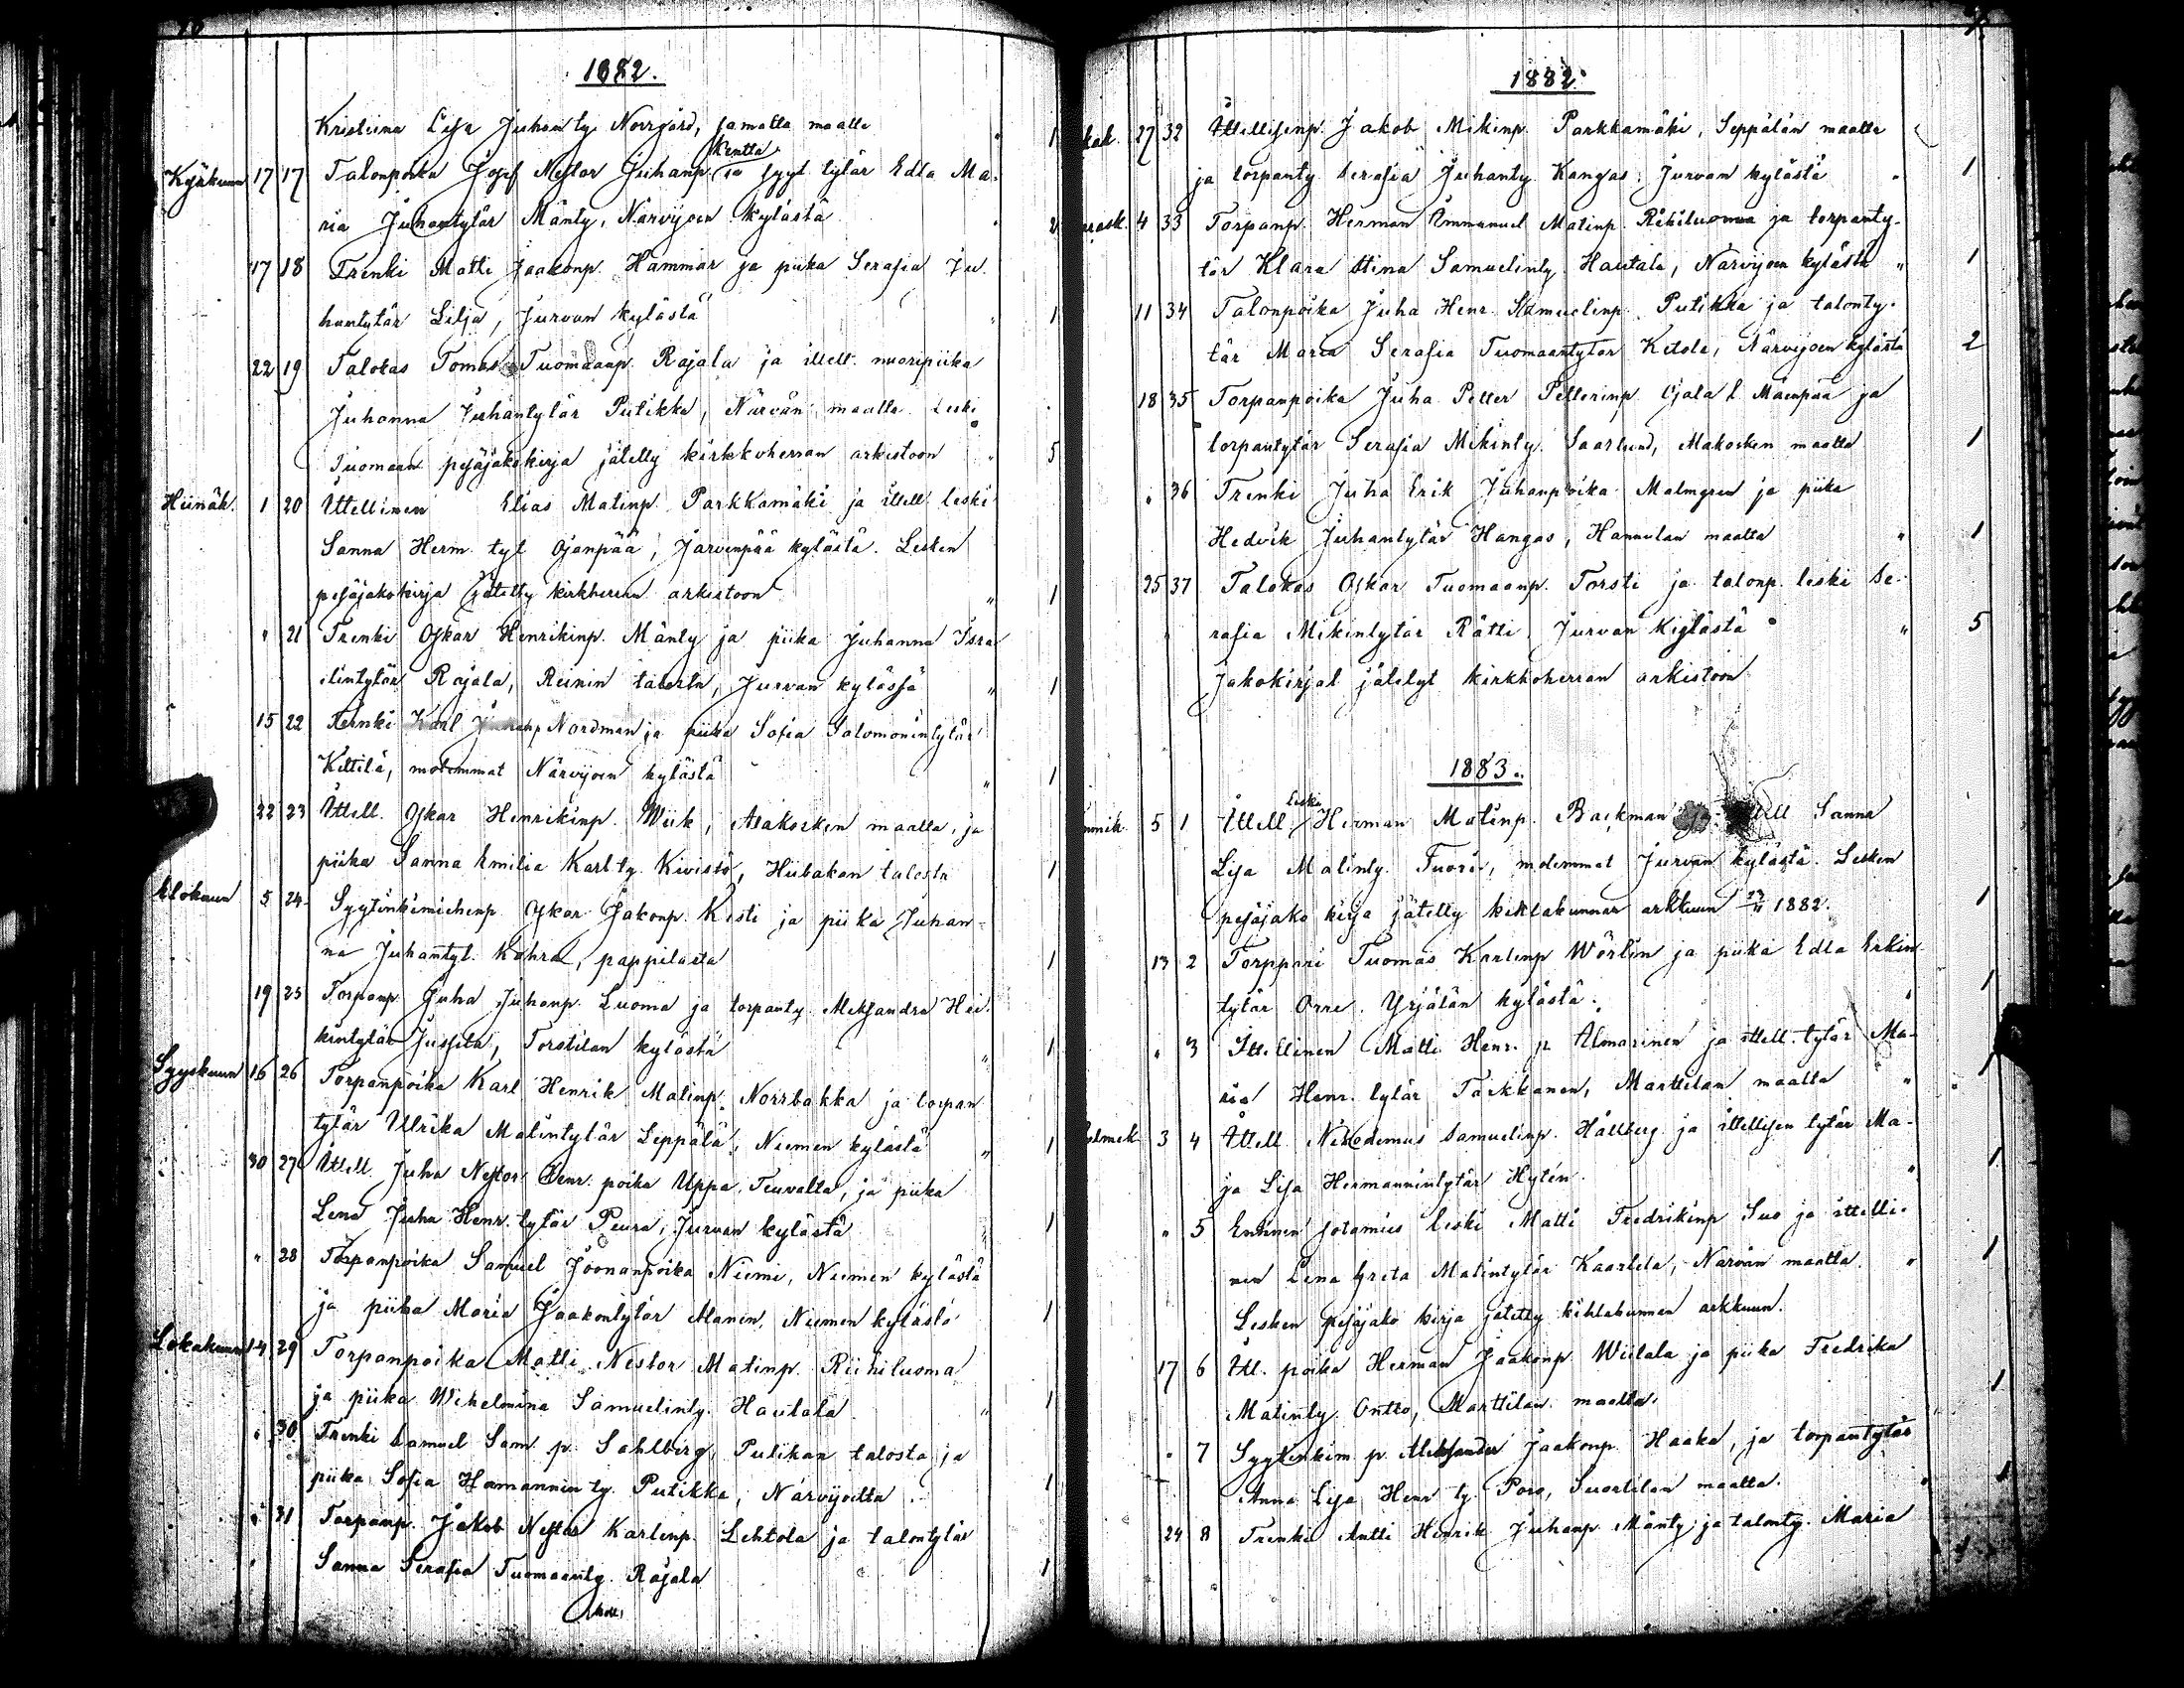 1882.
Kristiina Lisa Juhanty. Norrgård, samalta maalta 1
Kesäkuun 17 17 Talonpoika Josef Nestor Juhanp. Kentta ja syyt. tytär Edla Ma-
ria Juhantytär Mänty, Närvijoen kylästä 2
17 18 Trenki Matti Jaakonp. Hammar ja piika Serafia Ju-
hantytär Lilja, Jurvan kylästä " 1
22 19 Talokas Tomas Tuomaanp. Rajala ja ittell. nuoripiika
Juhanna Juhantytär Putikka, Närvän maalta. Leski
Tuomaan pesäjakokirja jätetty kirkkoherran arkistoon " 5
Heinäk. 1 20 Ittellinen Elias Matinp. Parkkamäki ja ittell. leski
Sanna Herm. tyt. Ojanpää, Järvenpää kylästä. Lesken
pesäjakokirja jätetty kirkherran arkistoon " 1
" 21 Trenki Oskar Henrikinp. Mänty ja piika Juhanna Isra-
elintytär Rajala, Reinin talosta, Jurvan kylässä " 1
15 22 Trenki Karl Juhanp. Nordman ja piika Sofia Salomonintytär
Kettilä, molemmat Närvijoen kylästä " 1
22 23 Ittell. Oskar Henrikinp. Wiik, Alakosken maalta, ja
piika Sanna Emilia Karl ty. Kivistö, Hiibakan talosta 1
Elokuun 5 24 Syytinkimiehenp. Oskar Jakonp. Kesti ja piika Juhan-
na Juhantyt. Kohra, pappilasta 1
19 25 Torpanp. Juha Juhanp. Luoma ja torpanty. Aleksandra Hei-
kintytär Jussila, Torstilan kylästä " 1
Syyskuun 16 26 Torpanpoika Karl Henrik Matinp. Norrbakka ja torpan
tytär Ulrika Matintytär Leppälä, Niemen kylästä " 1
30 27 Ittell. Juha Nestor Henr. poika Uppa, Teuvalta, ja piika
Lena Juha Henr. tytär Peura, Jurvan kylästä " 1
" 28 Torpanpoika Samuel Joonanpoika Niemi, Niemen kylästä
ja piika Maria Jaakontytär Alanen, Niemen kylästä 1
Lokakuun 14 29 Torpanpoika Matti Nestor Matinp. Riihiluoma
ja piika Wilhelmina Samuelinty. Hautala " 1
" 30 Trenki Samuel Sam. p. Sahlberg, Putikan talosta ja
piika Sofia Hermannin ty. Putikka, Närvijoelta 1
" 31 Torpanp. Jakob Nestor Karlinp. Lehtola ja talontytär
Sanna Serafia Tuomaanty. Rajala 1
1882.
Lokak. 27 32 Ittellisenp. Jakob Mikinp. Parkkamäki, Seppälän maalta
ja torpanty. Serafia Juhanty. Kangas, Jurvan kylästä " 1
Marrask. 4 33 Torpanp. Herman Emmanuel Matinp. Riihiluoma ja torpanty-
tär Klara Stina Samuelinty. Hautala, Närvijoen kylästä " 1
11 34 Talonpoika Juha Henr. Samuelinp. Putikka ja talonty-
tär Maria Serafia Tuomaantytär Ketola, Närvijoen kylästä 2
18 35 Torpanpoika Juha Petter Petterinp. Ojala l. Mäenpää ja
torpantytär Serafia Mikinty. Saarlund, Alakosken maalta 1
" 36 Trenki Juha Erik Juhanpoika Malmgren ja piika
Hedvik Juhantytär Hangas, Hannulan maalta " 1
25 37 Talokas Oskar Tuomaanp. Torsti ja talonp. leski Se-
rafia Mikintytär Rätti, Jurvan kylästä " 5
Jakokirjat jätetyt kirkkoherran arkistoon
1883.
Tammik. 5 1 Ittell. leski Herman Matinp. Backman ja ittell Sanna
Lisa Matinty. Tuori, molemmat Jurvan kylästä. Lesken
pesäjako kirja jätetty kihlakunnan arkkuun 1882. 1
13 2 Torppari Tuomas Karlinp. Wörlin ja piika Edla Erkin-
tytär Orre, Yrjälän kylästä. " 1
" 3 Ittellinen Matti Henr. p. Ilmarinen ja ittell. tytär Ma-
ria Henr. tytär Tarkkanen, Marttilan maalta " 1
Helmik. 3 4 Ittell. Nikodemus Samuelinp. Hällberg ja ittellisen tytär Ma-
ja Lisa Hermannintytär Hytén. " 1
" 5 Entinen sotamies leski Matti Fredrikinp. Suo ja ittelli-
nen Lena Greta Matintytär Kaartela, Närvän maalta. " 1
Lesken pesäjako kirja jätetty kihlakunnan arkkuun.
17 6 Itt. poika Herman Jaakonp. Wiitala ja piika Fredrika
Matinty. Ontto, Marttilan maalta. 1
" 7 Syytinkim. p. Aleksander Jaakonp. Haaka, ja torpantytär
Anna Lisa Henr. ty. Poro, Suortilan maalta. " 1
24 8 Trenki Antti Henrik Juhanp. Mänty ja talonty. Maria